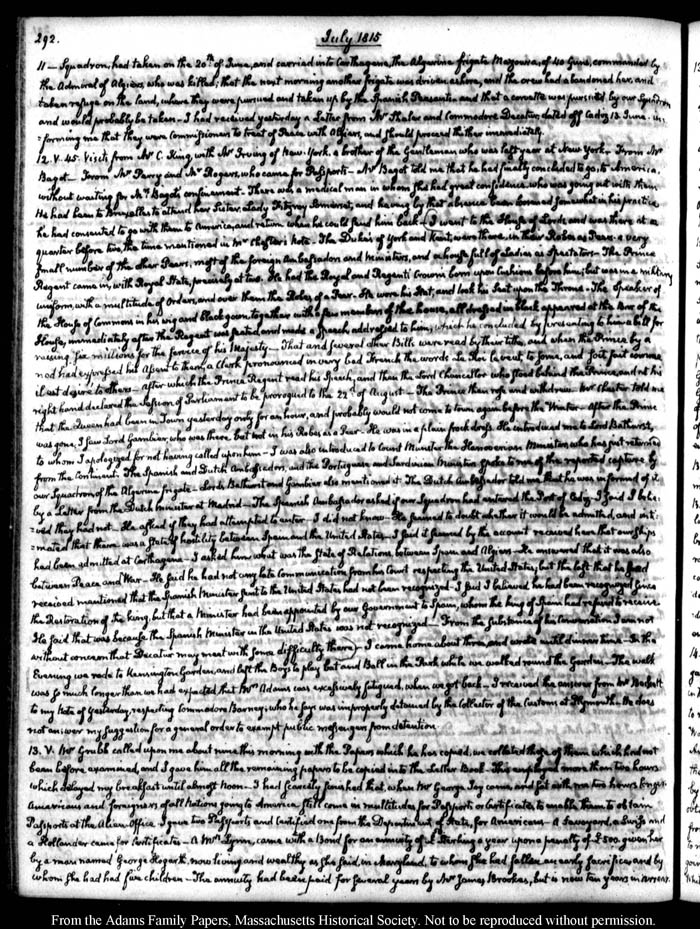 292.
July 1815
11 — Squadron, had taken on the 20th of June, and carried into Carthagena, the Algerine frigate Mazouda, of 40 Guns, commanded by
the Admiral of Algiers, who was killed; that the next morning another frigate was driven ashore, and the crew had abandoned her, and
taken refuge on the land, where they were pursued and taken up by the Spanish Peasants — and that a corvette was pursued by our Squadron
and would probably be taken — I had received yesterday a Letter from Mr Shaler and Commodore Decatur, dated off Cadiz 13 June — in-
-forming me that they were Commissioners to treat of Peace with Algiers, and should proceed thither immediately.
12. V. 45. Visits from Mr C. King, with Mr Irving of New-York, a brother of the Gentleman who was last year at New York — From Mr
Bagot — From Mr Parry and Mr Rogers, who came for Passports — Mr Bagot told me that he had finally concluded to go to America,
without waiting for Mrs Bagot's confinement — There was a medical man in whom she had great confidence who was going out with them
He had been to Bruxelles to attend her Sister Lady Fitzroy Somerset, and having by that absence been loosened somewhat in his practice
he had consented to go with them to America, and return when he could send him back — I went to the House of Lords, and was there at a
quarter before two the time mentioned in Mr Chester's Note. The Dukes of York and Kent, were there in their Robes as Peers — a very
small number of the other Peers, most of the foreign Ambassadors and Ministers, and a house full of Ladies as Spectators — The Prince
Regent came in, with Royal State, precisely at two. He had the Royal and Regent's Crowns born upon Cushions before him; but was in a military
uniform, with a multitude of Orders, and over them the Robes of a Peer. He wore his Hat, and took his Seat upon the Throne — The Speaker of
the House of Commons in his wig and black gown together with a few members of the house, all dressed in black appeared at the Bar of the
House, immediately after the Regent was seated, and made a Speech addressed to him, which he concluded by presenting to him a bill for
raising six millions for the service of his Majesty — That and several other Bills were read by their title, and when the Prince by a
nod had expressed his Assent to them, a Clerk pronounced in very bad French the words Le Roi le veut to some, and soit fait comme
il est desiré to others — after which the Prince Regent read his Speech, and then the Lord Chancellor who stood behind the Prince, and at his
right hand declared the Session of Parliament to be prorogued to the 22d of August — The Prince then rose and withdrew — Mr Chester told me
that the Queen had been in Town yesterday only for an hour, and probably would not come to town again before the Winter — After the Prince
was gone, I saw Lord Gambier who was there, but not in his Robes as a Peer — He was in a plain frock dress. He introduced me to Lord Bathurst,
to whom I apologized for not having called upon him — I was also introduced to Count Munster the Hanoverian Minister, who has just returned
from the Continent. The Spanish and Dutch Ambassadors, and the Portuguese and Sardinian Ministers spoke to me of the reported capture by
our Squadron of the Algerine frigate — Lords Bathurst and Gambier also mentioned it. The Dutch Ambassador told me that he was informed of it
by a Letter from the Dutch Minister at Madrid — The Spanish Ambassador asked if our Squadron had entered the Port of Cadiz. I said I belie-
-ved they had not — He asked if they had attempted to enter — I did not know — He seemed to doubt whether it would be admitted, and inti-
-mated that there was a state of hostility between Spain and the United States — I said it seemed by the account received here that our Ships
had been admitted at Carthagena — I asked him what was the State of Relations between Spain and Algiers — He answered that it was also
between Peace and War — He said he had not any late Communication from his Court respecting the United States; but the last that he had
received mentioned that the Spanish Minister sent to the United States had not been recognized — I said I believed he had been recognized since
the Restoration of the king, but that a Minister had been appointed by our Government to Spain, whom the king of Spain had refused to receive
He said that was because the Spanish Minister in the United States was not recognized — From the substance of his Conversation I am not
without concern that Decatur may meet with some difficulty there — I came home about three, and wrote until dinner time — In the
Evening we rode to Kensington Garden, and left the Boys to play bat and Ball in the Park while we walked round the Garden — The walk
was so much longer than we had expected that Mrs Adams was excessively fatigued, when we got back — I received the answer from Mr Beckett
to my Note of yesterday, respecting Commodore Barney, who he says was improperly detained by the Collector of the Customs at Plymouth. He does
not answer my suggestion for a general order to exempt public messengers from detention.
13. V. Mr Grubb called upon me about nine this morning with the Papers which he has copied; we collated those of them which had not
been before examined, and I gave him all the remaining papers to be copied into the Letter Book — This employed more than two hours
which delayed my breakfast until almost Noon — I had scarcely finished that, when Mr George Joy came, and sat with me two hours longer.
Americans and foreigners of all Nations going to America, still come in multitudes for Passports or Certificates, to enable them to obtain
Passports at the Alien Office. I gave two Passports and Certified one from the Department of State, for Americans — A Savoyard, a Swiss and
a Hollander came for Certificates — A Mrs Lynn, came with a Bond for an annuity of Sterling a year upon a penalty of £500. given her
by a man named George Hogarth, now living and wealthy as she said, in Maryland, to whom she had fallen an early sacrifice, and by
whom she had had five children — The annuity had been paid for several years by Mr James Brookes, but is now ten years in arrears.
From the Adams Family Papers, Massachusetts Historical Society. Not to be reproduced without permission.